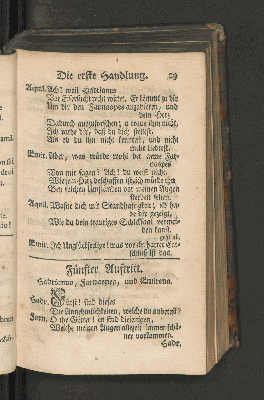 Die erste Handlung. 29
Aquil. Ach! weil Hadrianus
Vor Eifersucht recht wütet. Er kömmt zu dir
Um dir den Farnaspes anzubieten, und
dein Herz
Dadurch auszuforschen; a traue ihm nicht,
Ich warne dich, daß du dich stellest,
Als ob du ihn nicht kennest, und nicht
mehr liebtest.
Emir. Aber, was würde wohl der arme Far-
naspes
Von mir sagen? Ach! du weist nicht,
Wie sein Herz beschaffen ist, ich würde ihn
Bey solchen Umständen vor meinen Augen
sterben sehen.
Aquil. Waffne dich mit Standhaftigkeit; ich ha-
be dir gezeigt,
Wie du dein trauriges Schicksaal vermei-
den kanst.
geht ab.
Emir. Ich Unglückseelige! was vor ein harter Ent-
schluß ist das.
Fünfter Auftritt.
Hadrianus, Farnaspes, und Emirena.
Hadr. Fürst! sind dieses
Die Annehmlichkeiten, welche du anbetest?
Farn. O ihr Götter! es sind diejenigen,
Welche meinen Augen allezeit immer schö-
ner vorkommen.
Hadr.